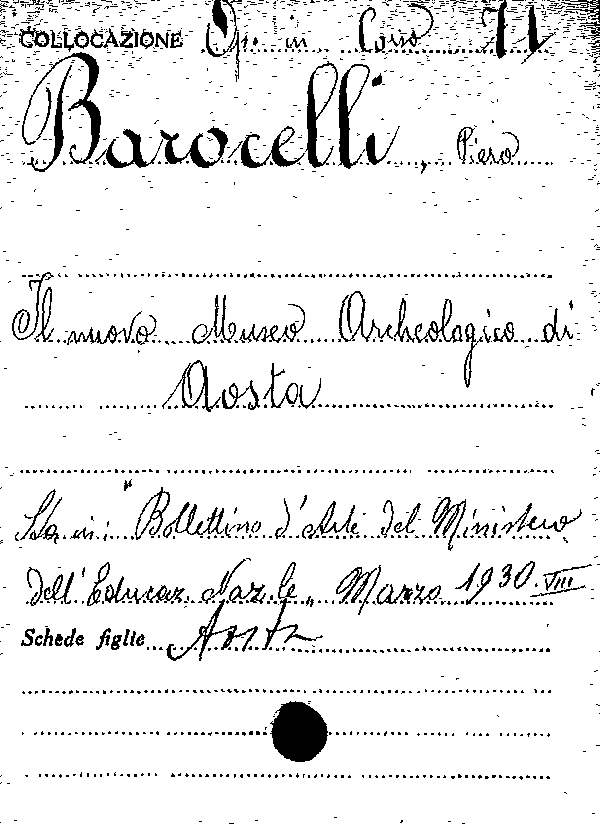 COLLOCAZIONE Op. in Corso 71
Barocelli, Piero
Il nuovo Museo Archeologico di
Aosta
Sta in: "Bollettino d'Arte del Ministero
dell'Educaz. Naz.le" Marzo 1930. VIII
Schede figlie Aosta